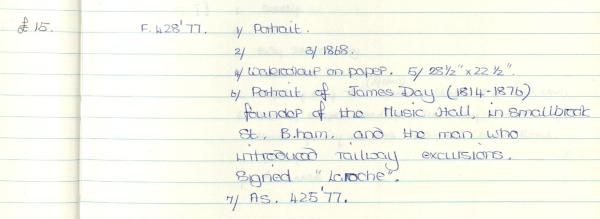 £15. F.428'77. 1/ Portrait.
2/ 3/ 1868.
4/ Watercolour on paper. 5/ 28½" x 22½".
6/ Portrait of James Day (1814-1876)
founder of the Music Hall, in Smallbrook
St. B.ham. and the man who
introduced railway excursions.
Signed "Laroche".
7/ As. 425'77.